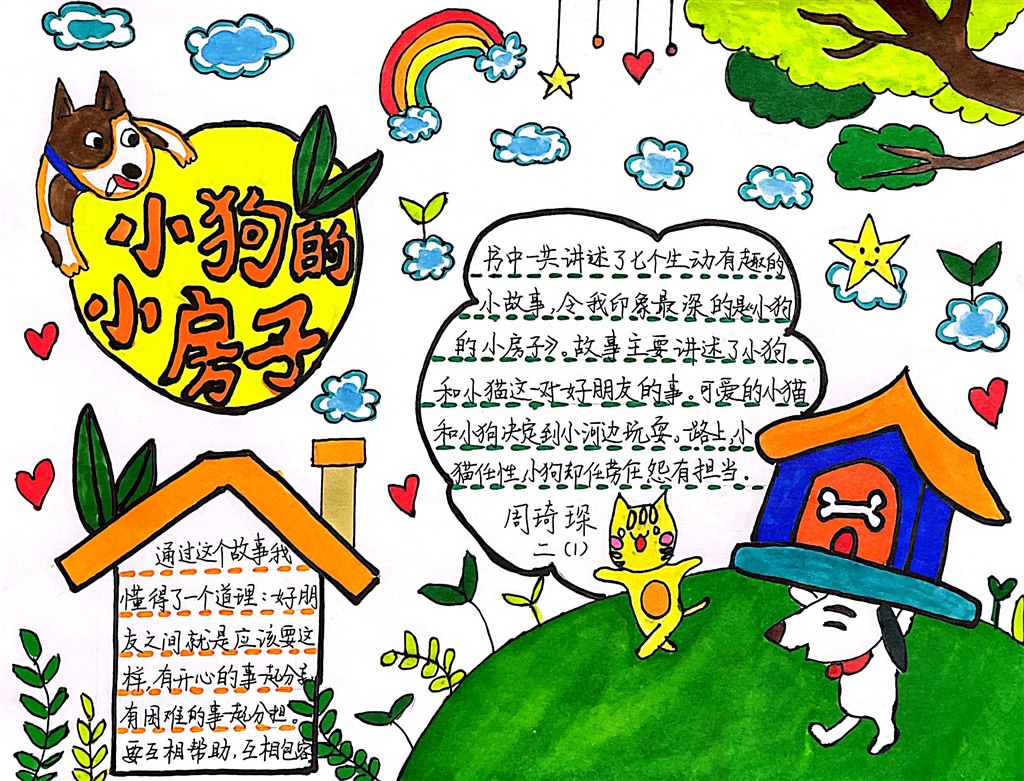 小狗的
小房子
书中一共讲述了七个生动有趣的
小故事,令我印象最深的是《小狗
的小房子》。故事主要讲述了小狗
和小猫这一对好朋友的事。可爱的小猫
和小狗决定到小河边玩耍。路上,小
猫任性,小狗却任劳任怨有担当.
周琦琛
二(1)
通过这个故事我
懂得了一个道理:好朋
友之间就是应该要这
样,有开心的事一起分享,
有困难的事一起分担。
要互相帮助,互相包容